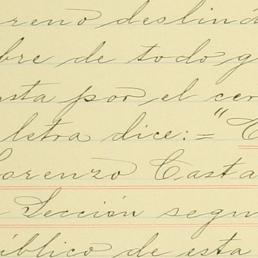 reno deslind
bre de todo g
sta por el cer
letra dice:= "C
Lorenzo Casta
Sección segu
úblico de esta